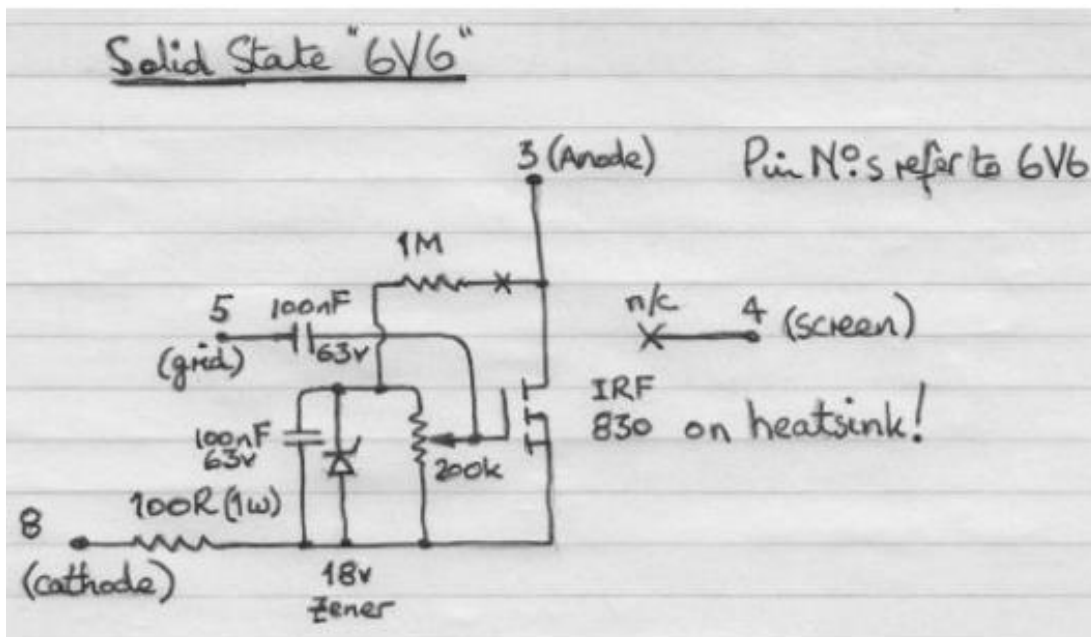 Solid State "6V6"
3 (Anode)
Pin Nº:s refer to 6V6
1M
5
100nF
63v
(grid)
n/c
4 (screen)
IRF
830 on heatsink!
100nF
63v
200k
100R (1w)
8
(cathode)
18v
Zener